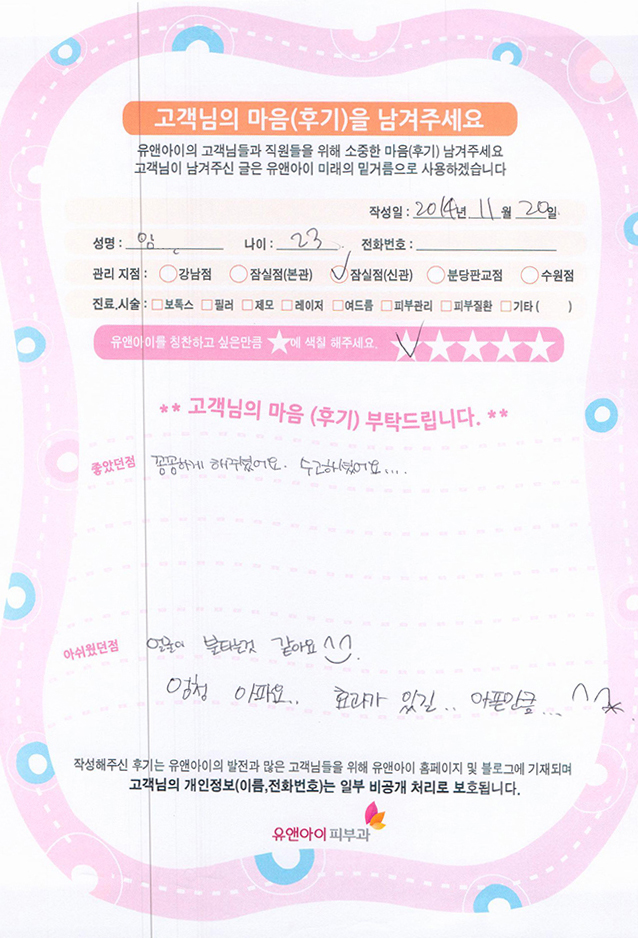 고객님의 마음(후기)을 남겨주세요
유앤아이의 고객님들과 직원들을 위해 소중한 마음(후기) 남겨주세요
고객님이 남겨주신 글은 유앤아이 미래의 밑거름으로 사용하겠습니다
작성일 : 2014년 11월 20일
성명 : 나이 : 23 전화번호 :
관리 지점 : 강남점 잠실점(본관) 잠실점(신관) 분당판교점 수원점
진료,시술 : 보톡스 필러 제모 레이저 여드름 피부관리 피부질환 기타 ( )
유앤아이를 칭찬하고 싶은만큼 ★에 색칠 해주세요.
** 고객님의 마음 (후기) 부탁드립니다. **
좋았던점 꼼꼼하게 해주셨어요. 수고하셨어요...
아쉬웠던점 얼굴이 불타는것 같아요 ^^
엄청 아파요.. 효과가 있길.. 아픈만큼... ^^
작성해주신 후기는 유앤아이의 발전과 많은 고객님들을 위해 유앤아이 홈페이지 및 블로그에 기재되며
고객님의 개인정보(이름,전화번호)는 일부 비공개 처리로 보호됩니다.
유앤아이피부과